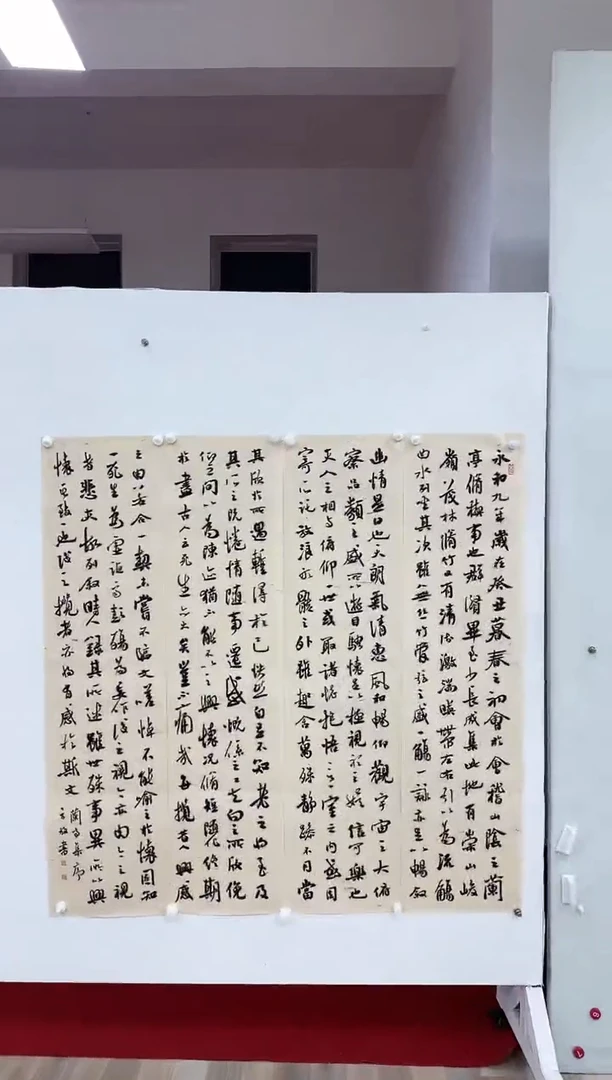 永和九年歲在癸丑暮春之初會於會稽山陰之蘭
亭脩禊事也群賢畢至少長咸集此地有崇山峻
嶺茂林脩竹又有清流激湍暎帶左右引以為流觴
曲水列坐其次雖無絲竹管弦之盛一觴一詠亦足以暢敘
幽情是日也天朗氣清惠風和暢仰觀宇宙之大俯
察品類之盛所以遊目騁懷足以極視聽之娛信可樂也
夫人之相與俯仰一世或取諸懷抱悟言一室之內或因
寄所託放浪形骸之外雖趣舍萬殊靜躁不同當
其欣於所遇蹔得於己快然自足不知老之將至及
其所之既惓情隨事遷感慨係之矣向之所欣俛
仰之間以為陳迹猶不能不以之興懷況脩短隨化終期
於盡古人云死生亦大矣豈不痛哉每攬昔人興感
之由若合一契未嘗不臨文嗟悼不能喻之於懷固知
一死生為虛誕齊彭殤為妄作後之視今亦由今之視
昔悲夫故列敘時人錄其所述雖世殊事異所以興
懷其致一也後之攬者亦將有感於斯文
蘭亭集序
書